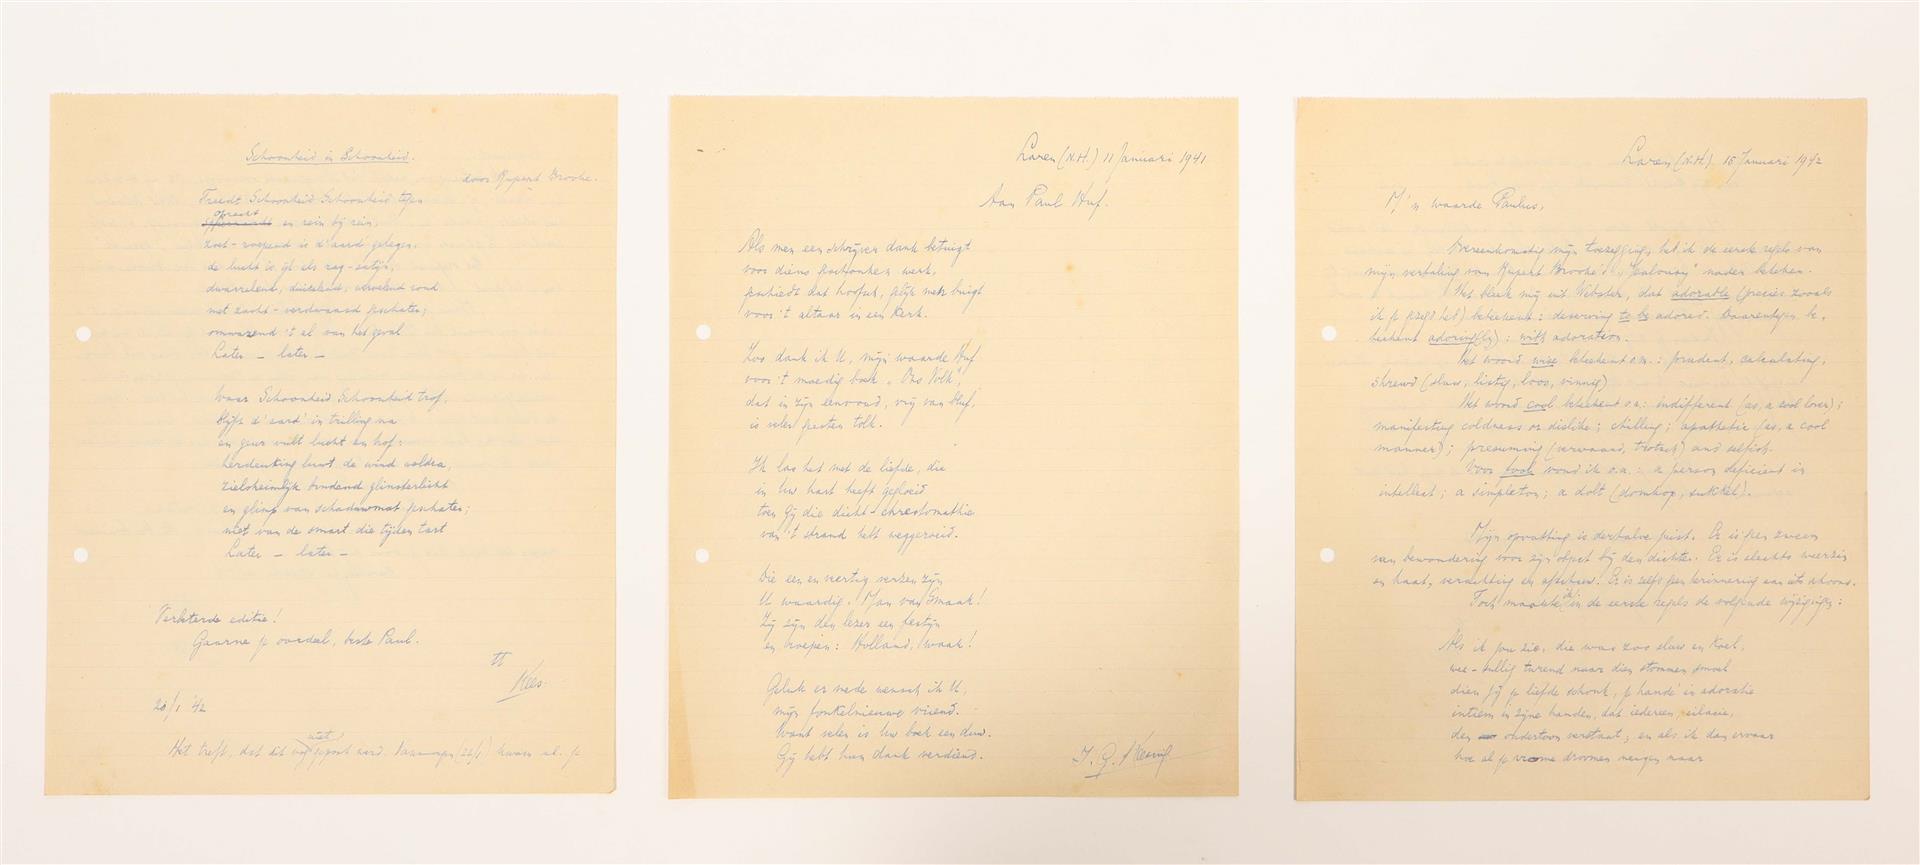 Schoonheid in Schoonheid.
door Rupert Brooke.
Treedt Schoonheid Schoonheid tegen
oprecht
en rein bij rein,
zoet-roepend is d'aard' gelegen,
de lucht is ijl als rag-satijn,
dwarrelend, duizelend, rond
met zacht-verdwaasd geschater;
omwazend 't al van het geval
Later – later –
Waar Schoonheid Schoonheid trof,
blijft d'aard' in trilling na
en geur vult lucht en hof:
herdenking de wind weldra,
zielsheimlijk tondend glinsterlicht
en glimp van schaduwmat geschater;
niet van de smart die tijden tart
Later – later –
Verbeterde editie!
Gaarne je oordeel, beste Paul.
tt
Kees
20/1 '42
Het treft, dat dit niet gepost werd. Vanmorgen (22/1) kwam al je
Laren (N.H.) 11 Januari 1941
Aan Paul Huf.
Als men een schrijver dank betuigt
voor diens geschonken werk,
geschiedt dat hoofsch, gelijk men buigt
voor 't altaar in een kerk.
Zoo dank ik U, mijn waarde Huf
voor 't moedig boek „Ons Volk",
dat in zijn eenvoud, vrij van bluf,
is veler geesten tolk.
Ik las het met de liefde, die
in Uw hart heeft gegloeid
toen Gij die dicht-chrestomathie
van 't strand hebt weggeroeid.
Die een en veertig verzen zijn
U waardig. Man van Smaak!
Zij zijn den lezer een festijn
en roepen: Holland, waak!
Geluk er mede wensch ik U,
mijn fonkelnieuwe vriend.
Want velen is Uw boek een duw.
Gij hebt hun dank verdiend.
Laren (N.H.) 15 Januari 1942
M'n waarde Paulus,
Overeenkomstig mijn toezegging, heb ik de eerste regels van
mijn vertaling van Rupert Brooke's „Jealousy" nader bekeken.
Het bleek mij uit Webster, dat adorable (precies zooals
ik je gezegd heb) beteekent: deserving to be adored. Daarentegen be-
teekent adoring(ly): with adoration.
Het woord wise beteekent o.m.: prudent, calculating,
shrewd (sluw, listig, loos, vinnig)
Het woord cool beteekent o.a.: indifferent (as, a cool lover);
manifesting coldness or dislike; chilling; apathetic (as, a cool
manner); presuming (verwaand, trotsch) and selfish.
Voor fool vond ik o.a.: a person deficient in
intellect; a simpleton; a dolt (domkop, sukkel).
Mijn opvatting is derhalve juist. Er is geen zweem
van bewondering voor zijn object bij den dichter. Er is slechts weerzin
en haat, verachting en afschuw! Er is zelfs geen herinnering aan iets schoons.
Toch maakte ik in de eerste regels de volgende wijzigingen:
Als ik jou zie, die was zoo sluw en koel,
wee-zullig turend naar dien stommen smoel
dien jij je liefde schonk, je hand' in adoratie
intiem in zijne handen, dat iedereen, eilacie,
den ondertoon verstaat; en als ik dan ervaar
hoe al je vrome droomen neigen naar